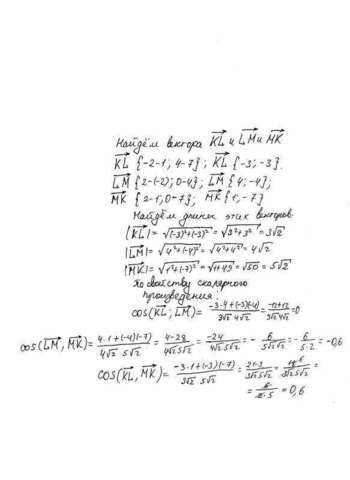 Найдём вектора KL и LM и MK
KL {-2-1; 4-7}; KL {-3; -3}.
LM {2-(-2); 0-4}; LM {4; -4};
MK {2-1; 0-7}; MK {1; -7}
Найдём длины этих векторов.
|KL| = √(-3)²+(-3)² = √3²+3² = 3√2
|LM| = √4²+(-4)² = √4²+4² = 4√2
|MK| = √1²+(-7)² = √1+49 = √50 = 5√2
По свойству скалярного
произведения:
cos(KL; LM) = -3·4+(-3)(-4) / 3√2 4√2 = -12+12 / 3√2 4√2 = 0
cos(LM, MK) = 4·1+(-4)(-7) / 4√2 5√2 = 4-28 / 4√2 5√2 = -24 / 4√2 5√2 = - 6 / 5√2√2 = - 6 / 5·2 = -0,6
cos(KL, MK) = -3·1+(-3)(-7) / 3√2 5√2 = 21-3 / 3√2 5√2 = 18 6 / 3√2 5√2 =
= 6 / 2·5 = 0,6